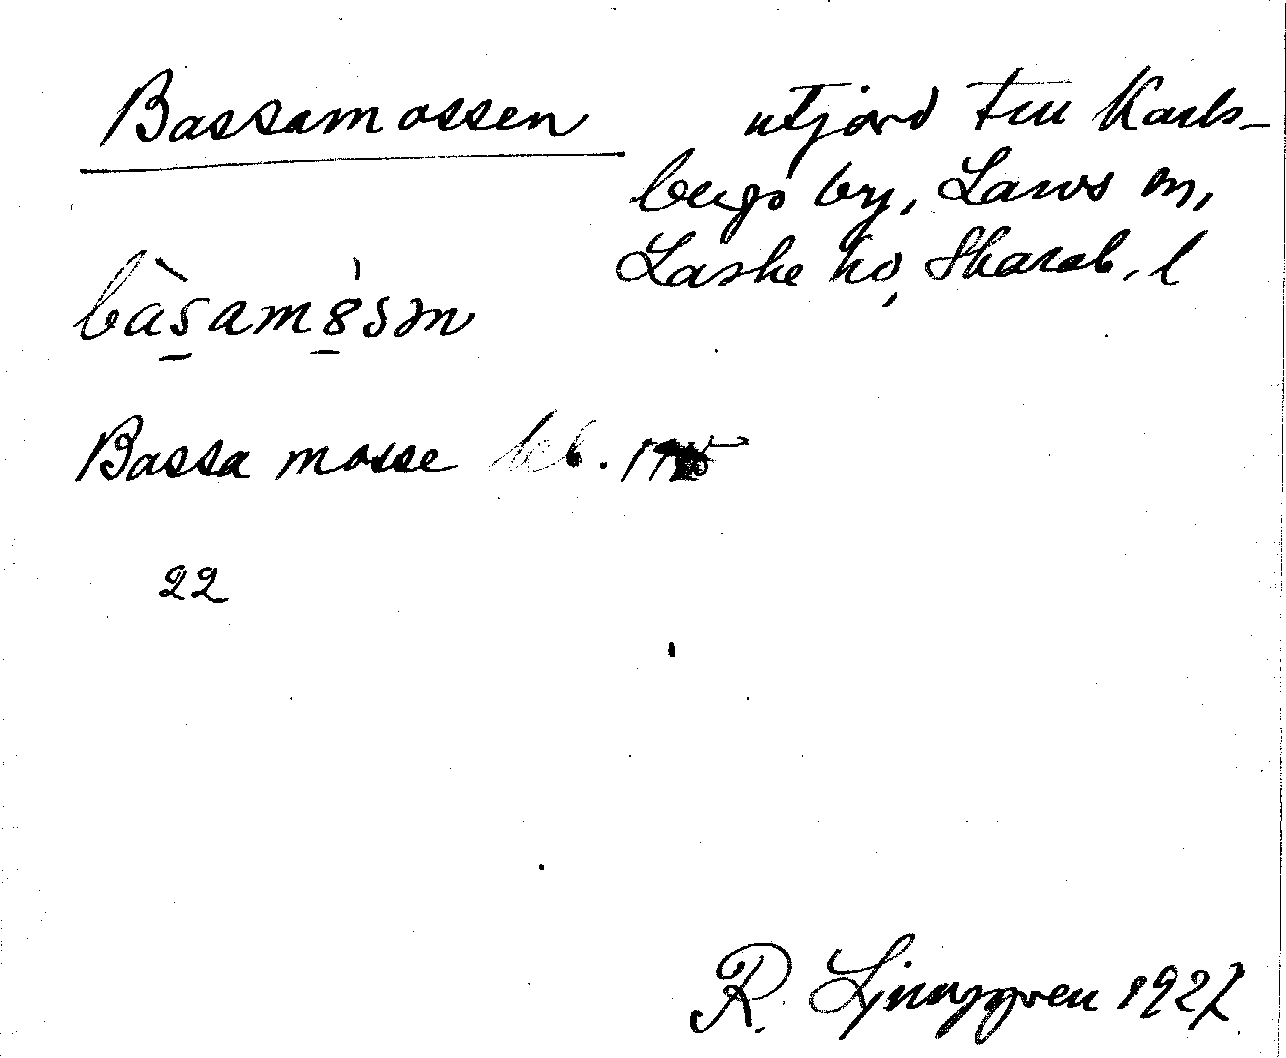 Bassamossen utjord till Karls-
bergs by, Larvs sn,
Laske hd, Skarab. l
bàsamòsən
Bassa mosse jeb. 1915
22
R. Ljunggren 1927.